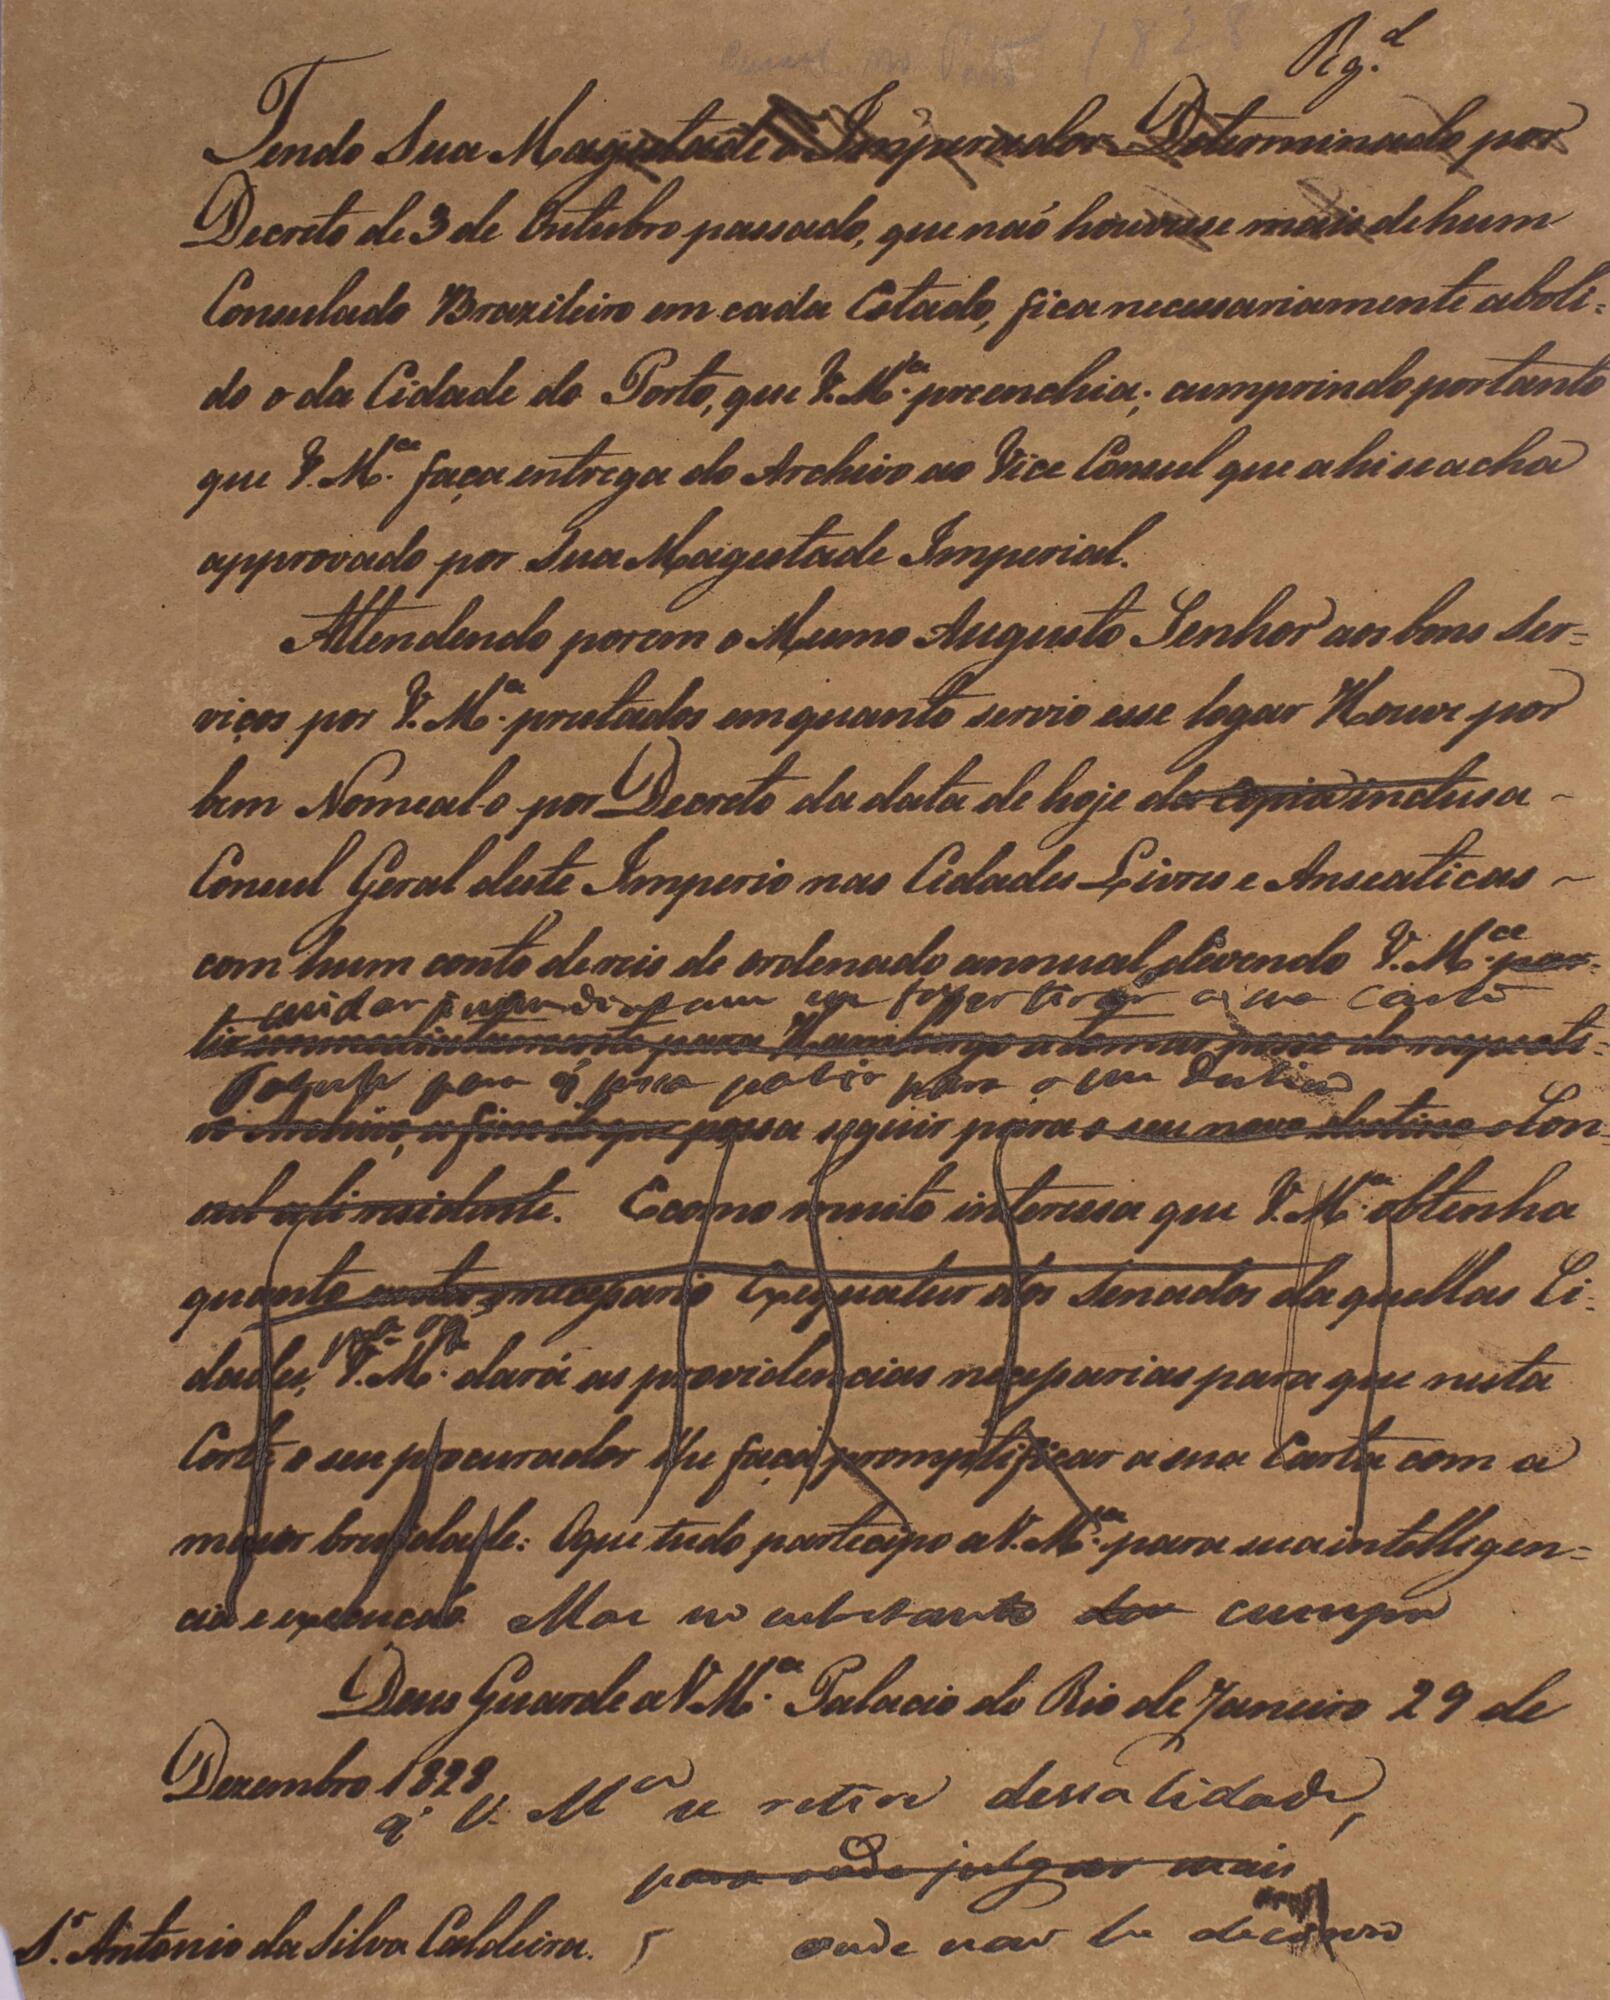 1828
Rig.d
Tendo Sua Magestade o Imperador Determinado por
Decreto de 3 de Outubro passado, que naõ houvesse mais de hum
Consulado Brazileiro em cada Estado, fica necessariamente aboli=
do o da Cidade do Porto, que V. M.ce preenchia; cumprindo portanto
que V. M.ce faça entrega do Archivo ao Vice Consul que ahi se acha
approvado por Sua Magestade Imperial.
Attendendo porem o Mesmo Augusto Senhor aos bons Ser=
viços por V. M.ce prestados emquanto servio esse logar Houve por
bem Nomeal-o por Decreto da data de hoje da copia inclusa
Consul Geral deste Imperio nas Cidades Livres e Anseaticas
com hum conto de reis de ordenado annual, devendo V. M.ce par=
cuidar em tirar a sua Carta
tir immediatamente para Hamburgo a tomar posse do respecti=
para q possa partir para o seu destino
vo Archivo, a fim de que possa seguir para o seu novo destino o Con=
sul ali residente. E como muito interessa que V. M.ce obtenha
quanto antes o necessario Exequatur dos Senados daquellas Ci=
dades, V. M.ce dará as providencias necessarias para que nesta
Corte o seu procurador lhe faça promptificar a sua Carta com a
maior brevidade: O que tudo participo a V. M.ce para sua intelligen=
cia e execucaõ Mas no entretanto cumpre
Deus Guarde a V M.ce Palacio do Rio de Janeiro 29 de
Dezembro 1828
q' V. M.ce se retire dessa Cidade,
para onde julgar mais
onde nao he decoroso
S.r Antonio da Silva Caldeira.